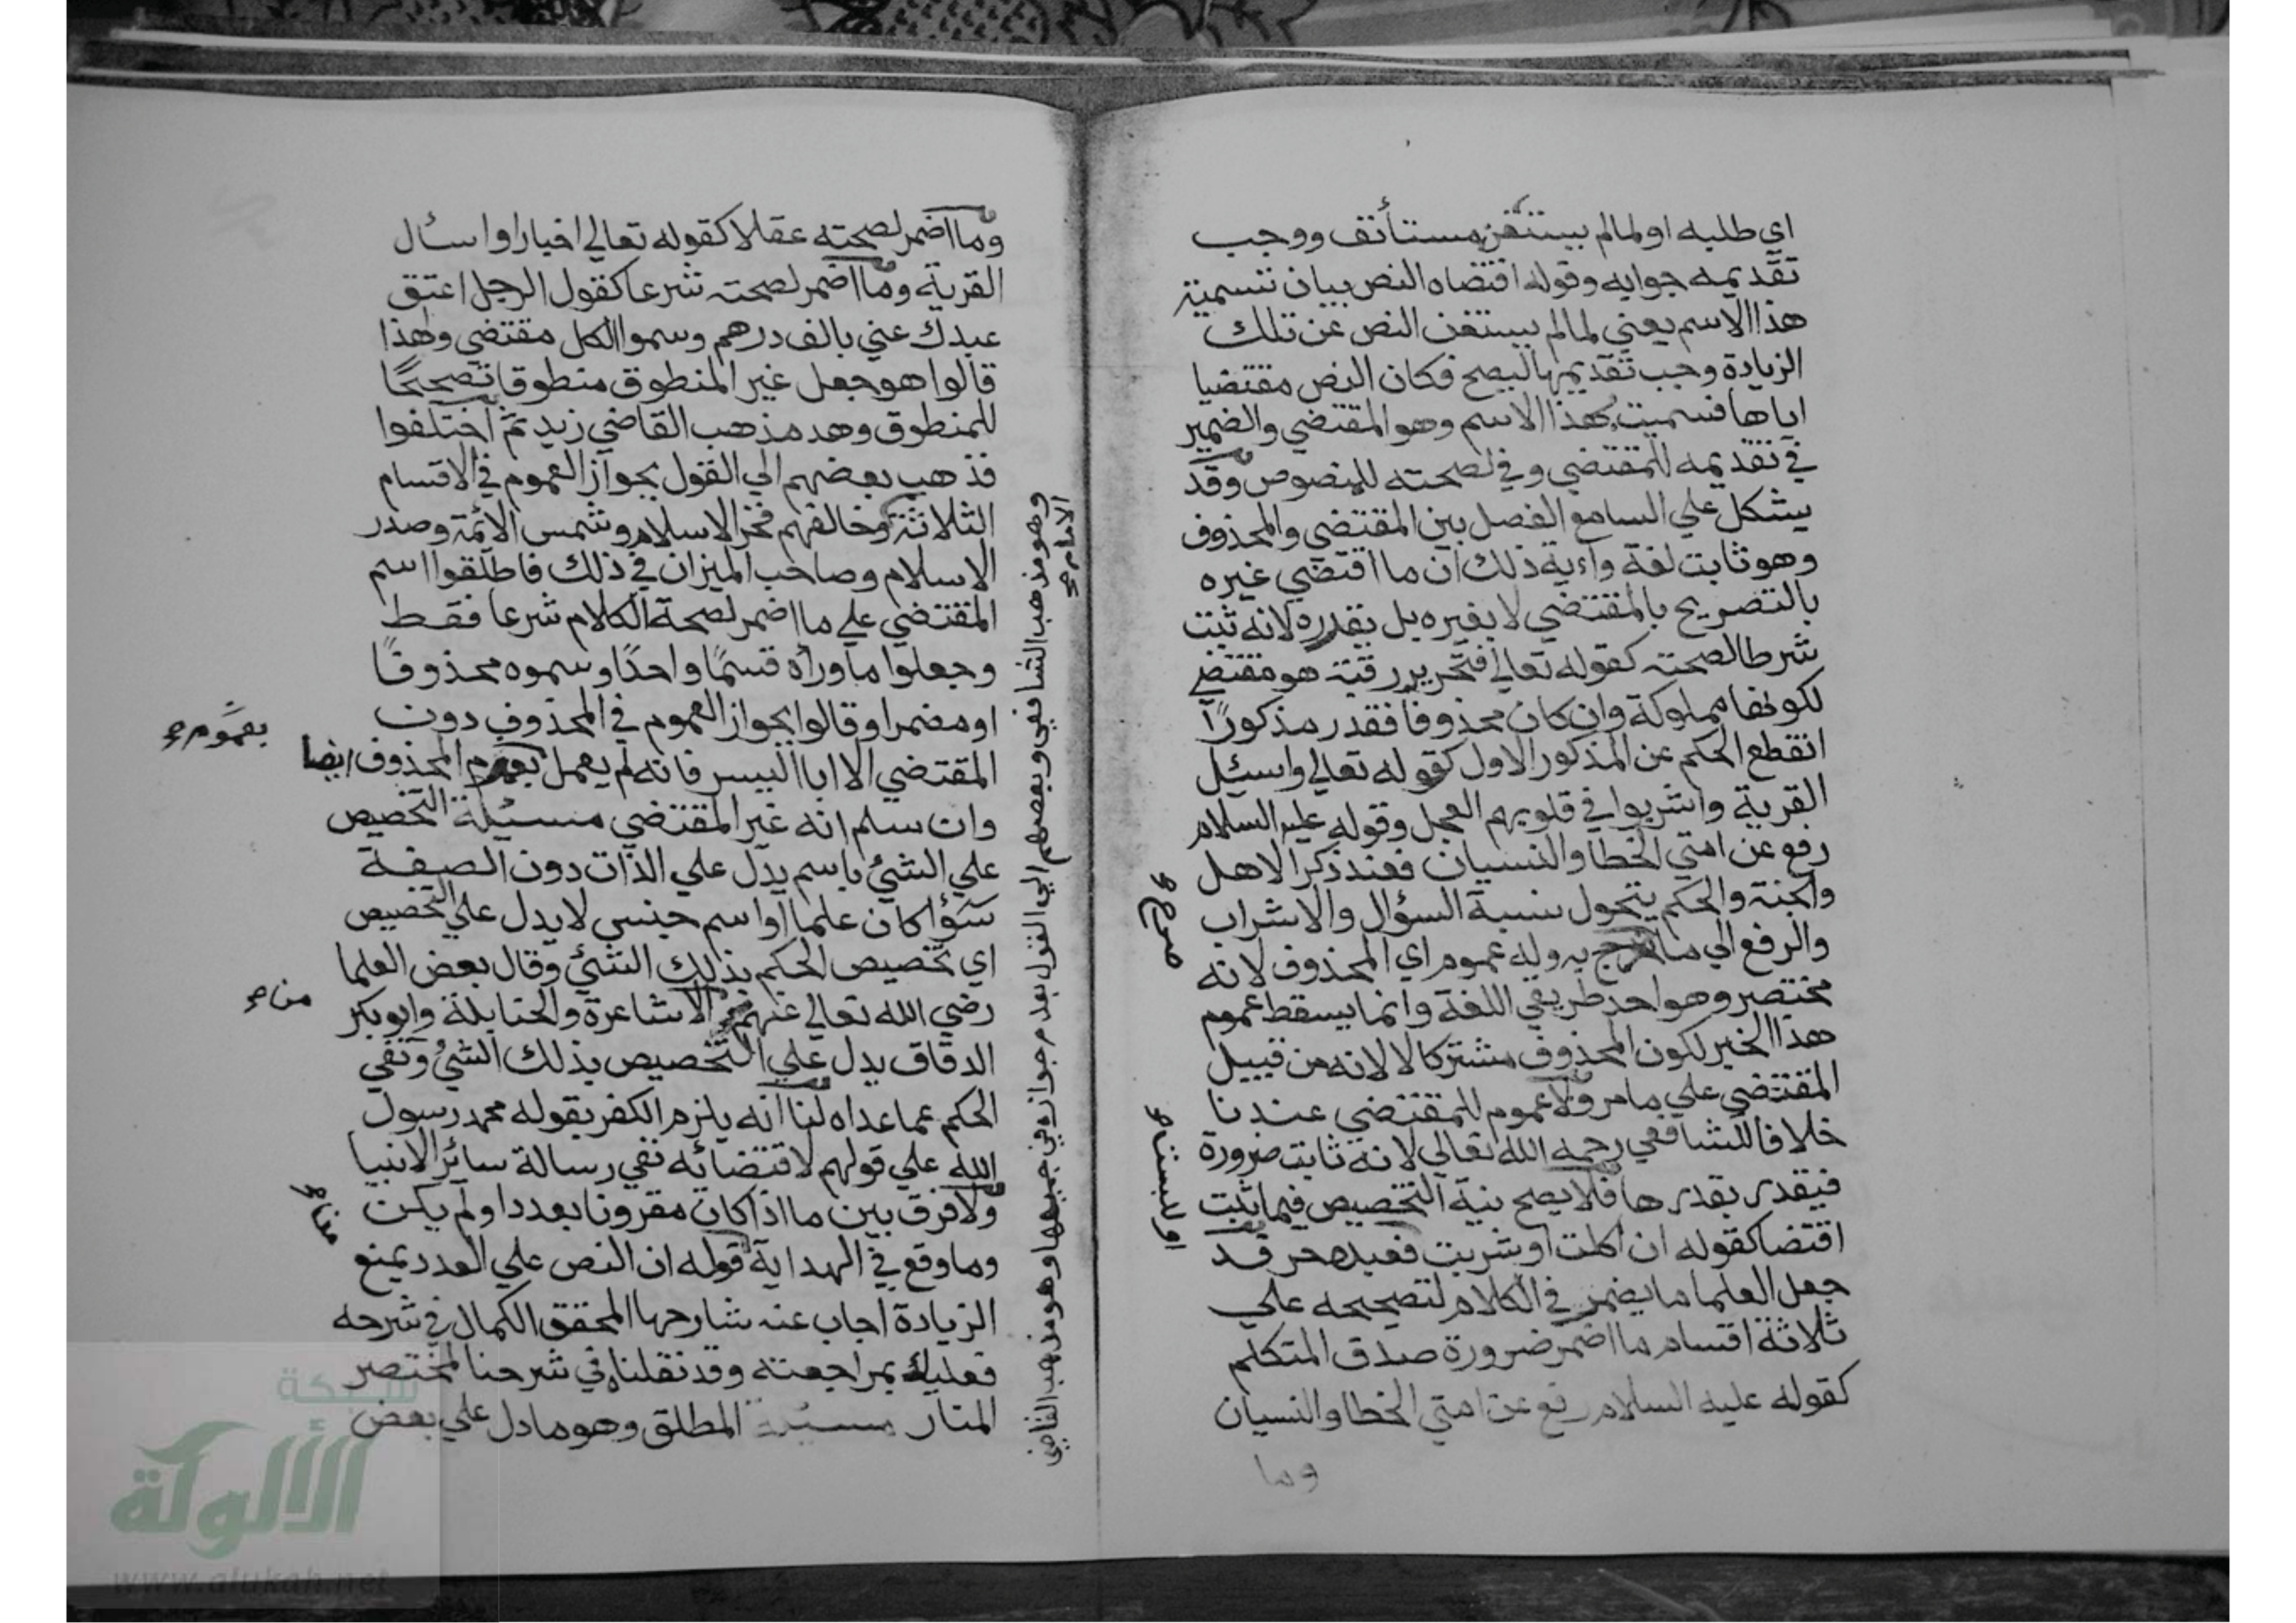 اي طلبه او لمالم يستغن مستأنف ووجب
تقديمه جوابه وقوله اقتضاه النص بيان تسمية
هذا الاسم يعني لمالم يستغن النص عن تلك
الزيادة وجب تقديمها ليصح فكان النص مقتضيا
اياها فسميت بهذا الاسم وهو المقتضي والضمير
في تقديمه للمقتضي وفي لصحته للمنصوص وقد
يشكل علي السامع الفصل بين المقتضي والمحذوف
وهو ثابت لغة واية ذلك ان ما اقتضي غيره
بالتصريح بالمقتضي لا يغيره بل يقدره لانه ثبت
شرطا لصحته كقوله تعالي فتحرير رقبة هو مقتضي
لكونها مملوكة وان كان محذوفا فقدر مذكورًا
انقطع الحكم عن المذكور الاول كقوله تعالي واسئل
القرية واشربوا في قلوبهم العجل وقوله عليه السلام
رفع عن امتي الخطا والنسيان فعند ذكر الاهل
والحكم يتحول نسبة السؤال والاشراب
والرفع الي ما به وله عموم اي المحذوف لانه
صرح
مختصر وهو احد طريقي اللغة وانما يسقط عموم
هذا الخبر لكون المحذوف مشتركا لا لانه من قبيل
المقتضي علي ما مر ولا عموم للمقتضي عندنا
خلافا للشافعي رحمه الله تعالي لانه ثابت ضرورة
فيقدر بقدرها فلا يصح نية التخصيص فيما ثبت
اقتضا كقوله ان اكلت او شربت فعبده حر قد
او لبست
جعل العلما ما يضمر في الكلام لتصحيحه علي
ثلاثة اقسام ما اضمر ضرورة صدق المتكلم
كقوله عليه السلام رفع عن امتي الخطا والنسيان
وما
وما اضمر لصحته عقلا كقوله تعالي اخبارا واسئال
القرية وما اضمر لصحته شرعا كقول الرجل اعتق
عبدك عني بالف درهم وسموا الكل مقتضي ولهذا
قالوا هو جعل غير المنطوق منطوقا تصحيحًا
للمنطوق وهد مذهب القاضي زيد ثم اختلفوا
فذهب بعضهم الي القول بجواز العموم في الاقسام
الثلاثة وخالفهم فخر الاسلام وشمس الائمة وصدر
الاسلام وصاحب الميزان في ذلك فاطلقوا اسم
المقتضي علي ما اضمر لصحة الكلام شرعا فقط
وجعلوا ما وراه قسمًا واحدًا وسموه محذوفًا
او مضمرا وقالوا بجواز العموم في المحذوف دون
المقتضي الا ابا اليسر فانه لم يعمل بعموم المحذوف ايضا
بعموم
وان سلم انه غير المقتضي مسئلة التخصيص
علي الشئ باسم يدل علي الذات دون الصفة
سؤا كان علما او اسم جنس لا يدل علي التخصيص
اي تخصيص الحكم بذلك الشئ وقال بعض العلما
رضي الله تعالي عنهم الاشاعرة والحنابلة وابو بكر
منا
الدقاق يدل علي التخصيص بذلك الشئ ونفي
الحكم عما عداه لنا انه يلزم الكفر بقوله محمد رسول
الله علي قولهم لاقتضائه نفي رسالة سائر الانبيا
ولا فرق بين ما اذا كان مقرونا بعدد او لم يكن
وما وقع في الهداية قوله ان النص علي العدد يمنع
الزيادة اجاب عنه شارحها المحقق الكمال في شرحه
فعليك بمراجعته وقد نقلناه في شرحنا المختصر
المنار مسئلة المطلق وهو ما دل علي بعض
وهو مذهب الشافعي وبعضهم الي القول بعدم جوازه في جميعها وهو مذهب القاضي
الامام
شبكة
الألوكة
www.alukah.net